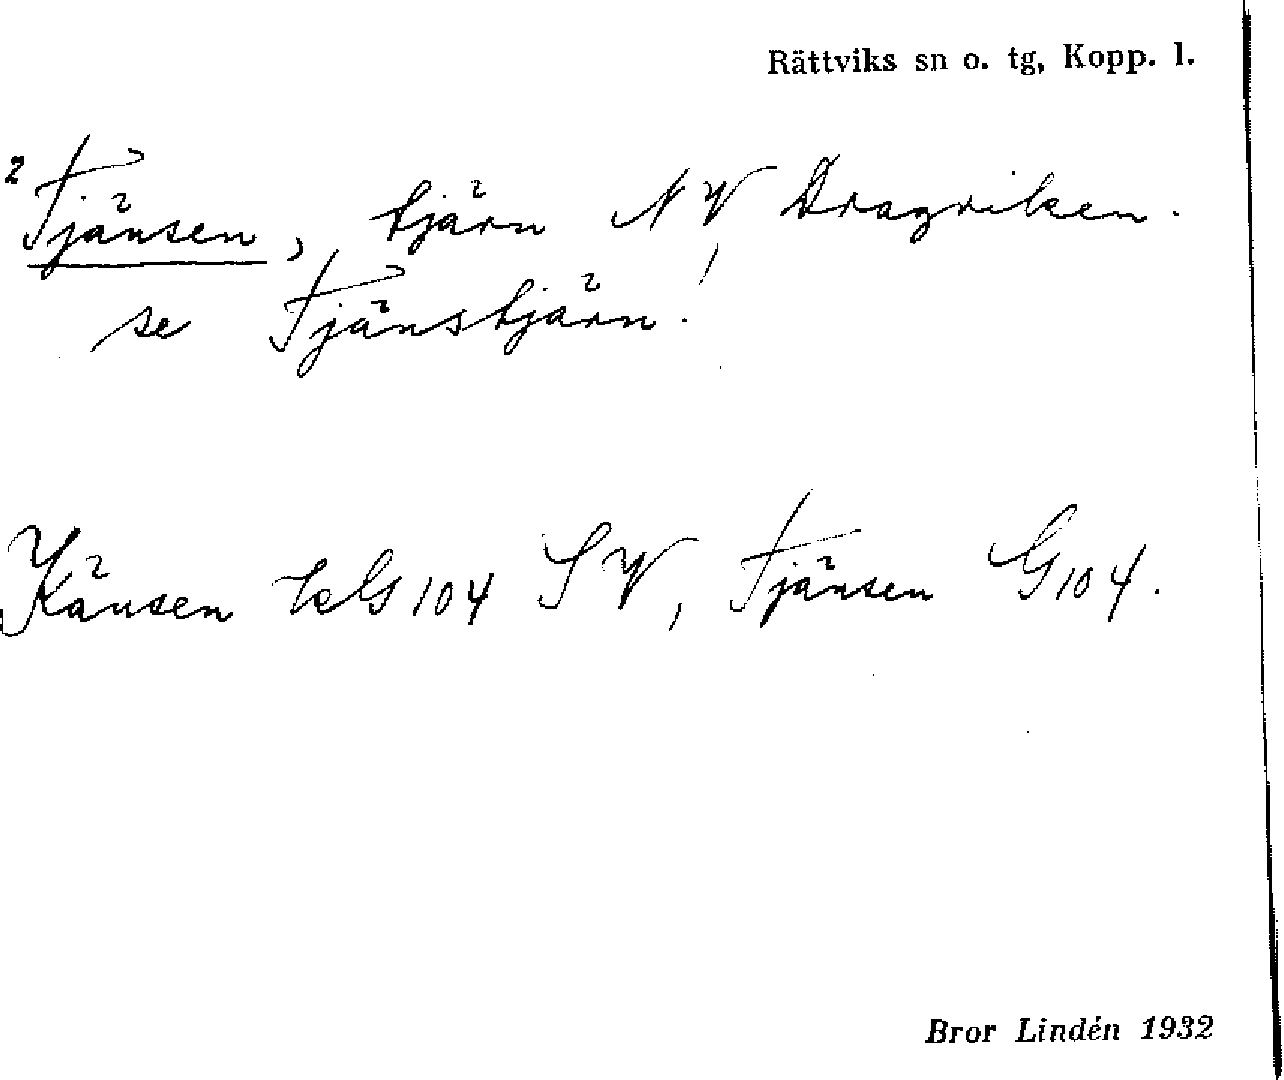 Rättviks sn o. tg, Kopp. l.
2 Tjänsen, tjärn NV Dragriken.
se Tjänstjärn!
Känsen G104 SV, Tjänsen G104.
Bror Lindén 1932